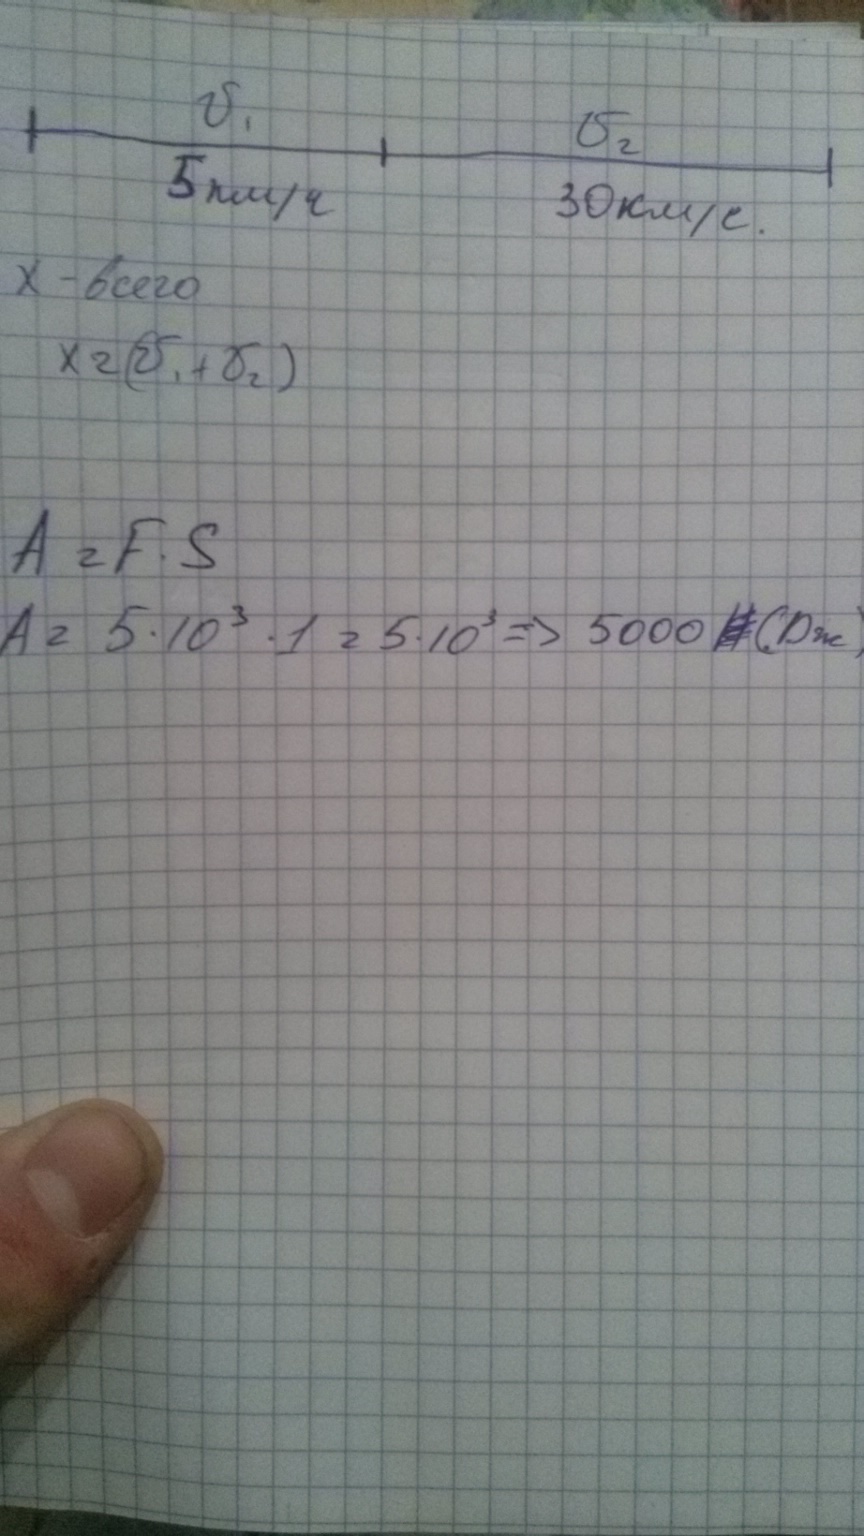 υ₁ υ₂
5 км/ч 30 км/с.
x - всего
x = (υ₁ + υ₂)
A = F · S
A = 5 · 10³ · 1 = 5 · 10³ => 5000 (Дж)